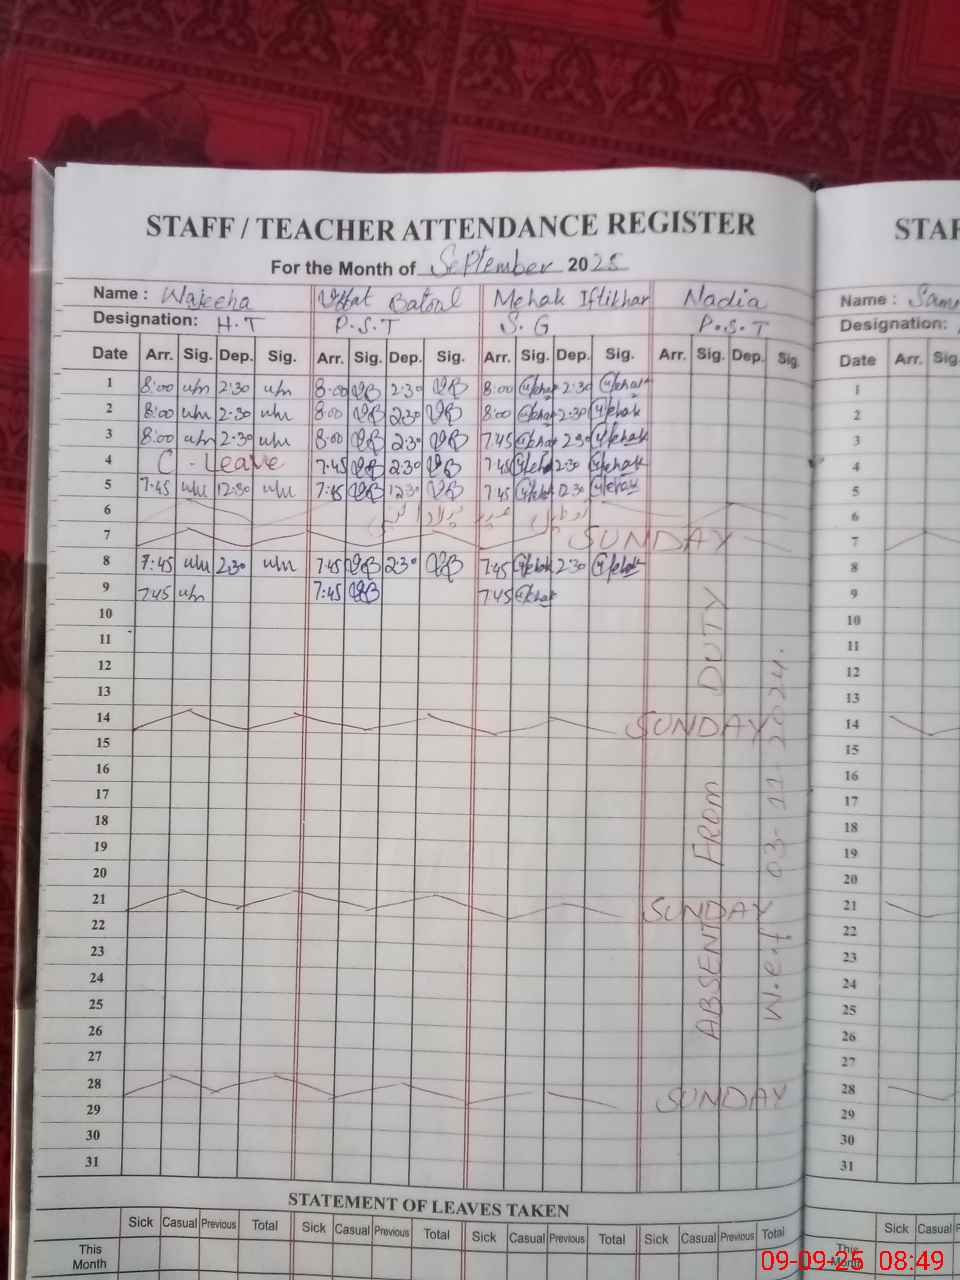 STAFF / TEACHER ATTENDANCE REGISTER
STAF
For the Month of September 2025
Name : Wajeeha Batool Mehak Iftikhar Nadia
Name : Sam
Designation: H.T P.S.T S.G P.S.T
Designation:
Date Arr. Sig. Dep. Sig. Arr. Sig. Dep. Sig. Arr. Sig. Dep. Sig. Arr. Sig. Dep. Sig.
Date Arr. Sig
1 8:00 2:30 8:00 2:30 8:00 Mehak 2:30 Mehak
1
2 8:00 2:30 8:00 2:30 8:00 Mehak 2:30 Mehak
2
3 8:00 2:30 8:00 2:30 7:45 Mehak 2:30 Mehak
3
4 C - Leave 7:45 2:30 7:45 Mehak 2:30 Mehak
4
5 7:45 12:30 7:45 12:30 7:45 Mehak 12:30 Mehak
5
6
6
7 SUNDAY
7
8 7:45 2:30 7:45 2:30 7:45 Mehak 2:30 Mehak
8
9 7:45 7:45 7:45 Mehak
9
10
10
11
11
12
12
13
13
14 SUNDAY
14
15
15
16
16
17
17
18
18
19
19
20
20
21 SUNDAY
21
22
22
23
23
24
24
25
25
26
26
27
27
28 SUNDAY
28
29
29
30
30
31
31
ABSENT FROM DUTY
w.e.f 03-11-2024.
STATEMENT OF LEAVES TAKEN
Sick Casual Previous Total Sick Casual Previous Total Sick Casual Previous Total Sick Casual Previous Total
Sick Casual P
This Month
This Month
09-09-25 08:49